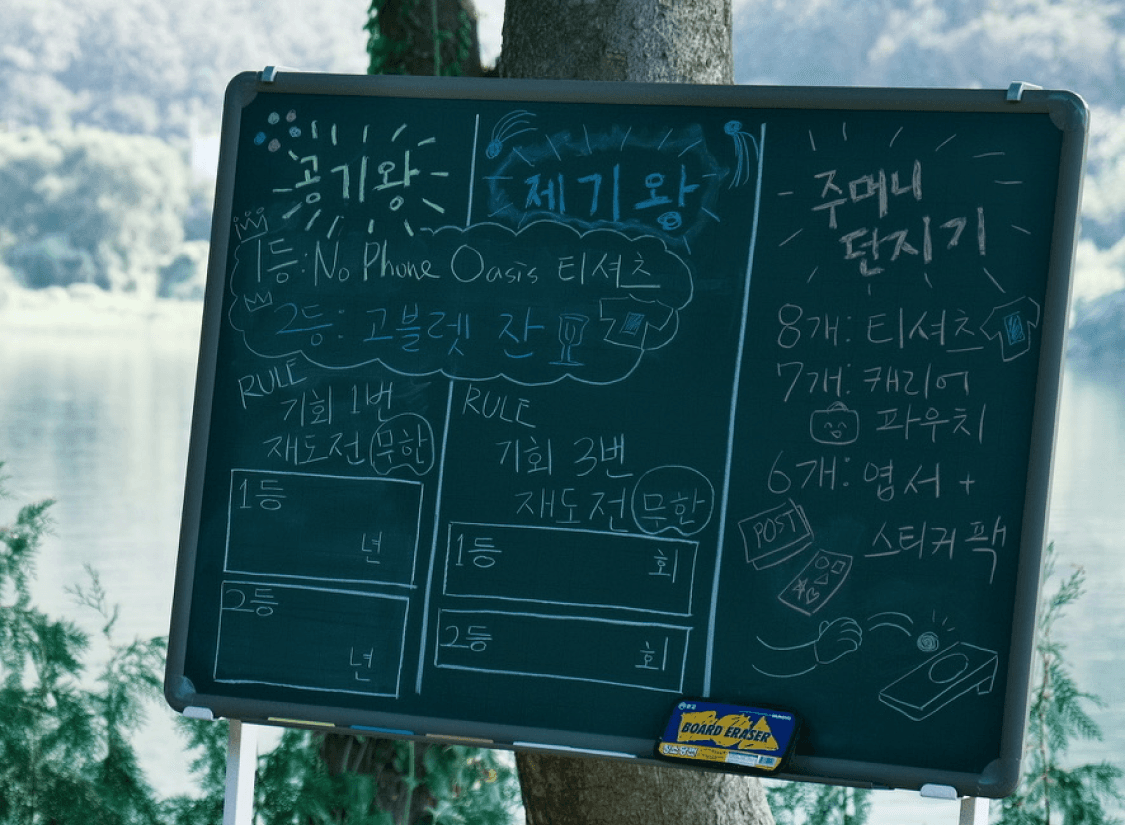 공기왕
제기왕
1등: No Phone Oasis 티셔츠
2등: 고블렛 잔
RULE
기회 1번
재도전 무한
1등
년
2등
년
RULE
기회 3번
재도전 무한
1등 회
2등 회
주머니
던지기
8개: 티셔츠
7개: 캐리어
파우치
6개: 엽서 +
스티커팩
POST
BOARD ERASER